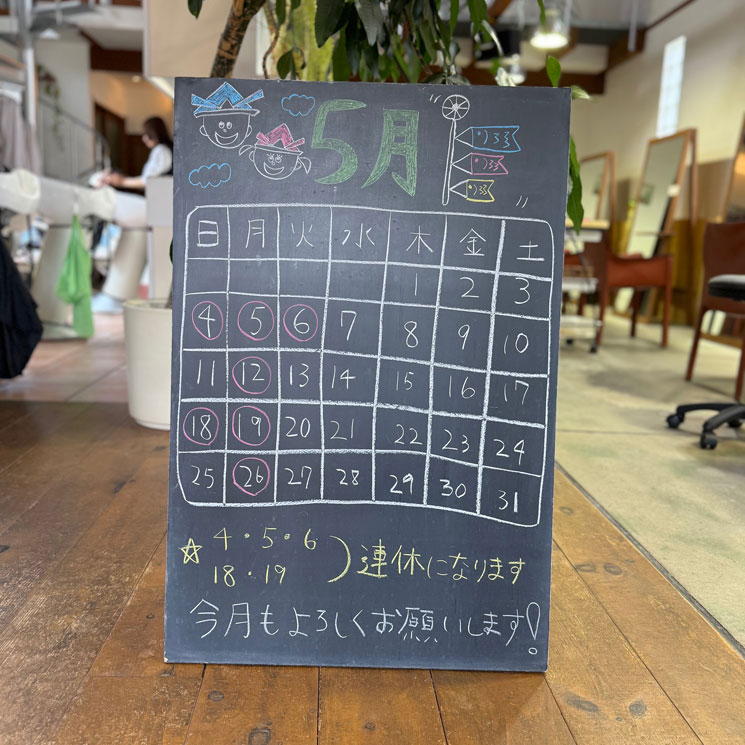 5月
日 月 火 水 木 金 土
1 2 3
4 5 6 7 8 9 10
11 12 13 14 15 16 17
18 19 20 21 22 23 24
25 26 27 28 29 30 31
☆ 4・5・6
18・19 ) 連休になります
今月もよろしくお願いします!